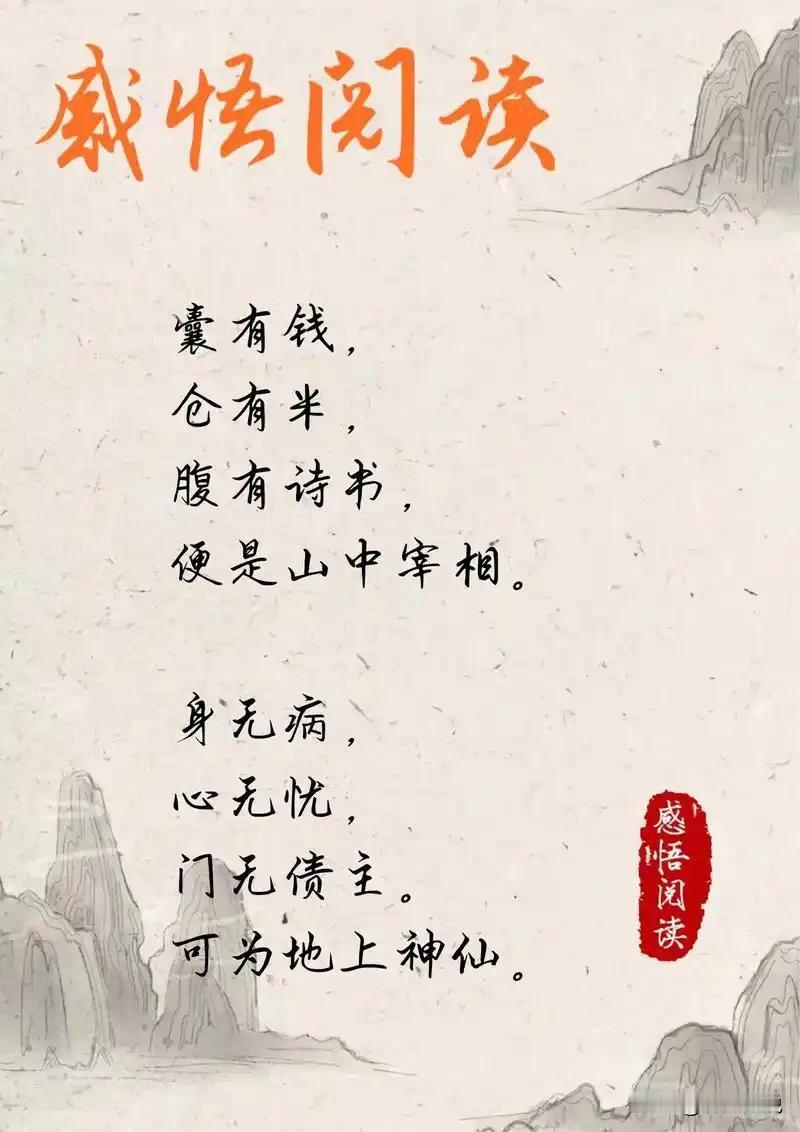 感悟阅读
囊有钱，
仓有米，
腹有诗书，
便是山中宰相。
身无病，
心无忧，
门无债主。
可为地上神仙。
感悟阅读